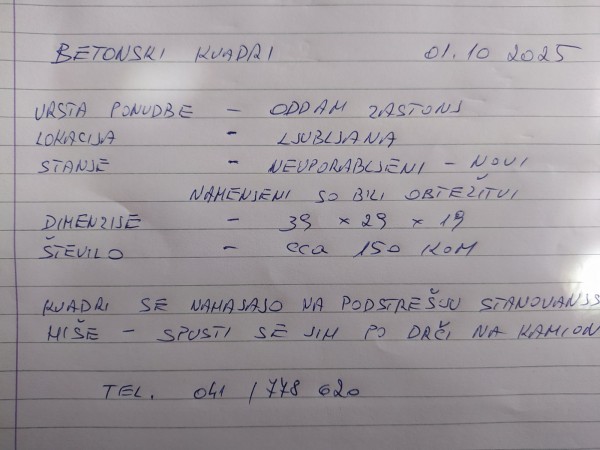 BETONSKI KVADRI 01.10 2025
VRSTA PONUDBE - ODDAM ZASTONJ
LOKACIJA - LJUBLJANA
STANJE - NEUPORABLJENI - NOVI
NAMENJENI SO BILI OBTEŽITVI
DIMENZIJE - 39 x 29 x 19
ŠTEVILO - cca 150 KOM
KVADRI SE NAHAJAJO NA PODSTREŠJU STANOVANJS
HIŠE - SPUSTI SE JIH PO DRČI NA KAMION
TEL. 041 / 778 620